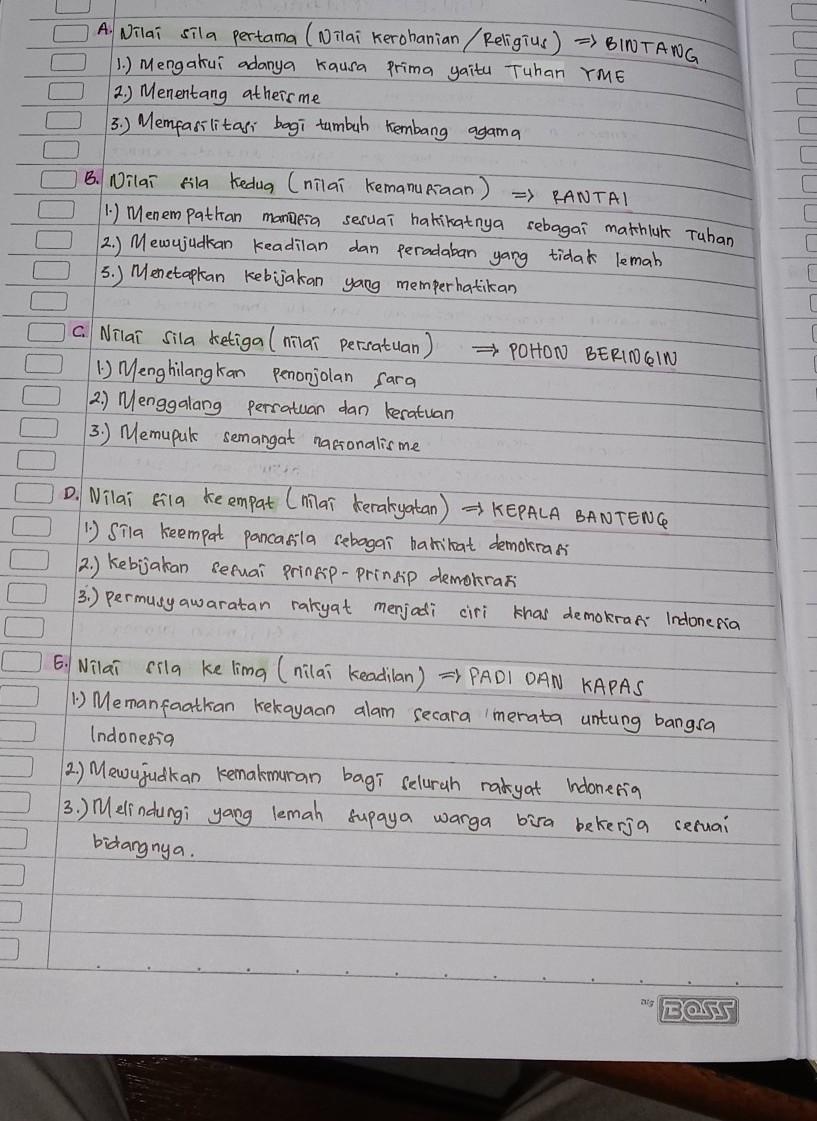 A. Nilai sila pertama (Nilai kerohanian/Religius) => BINTANG
1.) Mengakui adanya kausa prima yaitu Tuhan YME
2.) Menentang atheisme
3.) Memfasilitasi bagi tumbuh kembang agama
B. Nilai sila kedua (nilai kemanusiaan) => RANTAI
1.) Menempatkan manusia sesuai hakikatnya sebagai makhluk Tuhan
2.) Mewujudkan keadilan dan peradaban yang tidak lemah
3.) Menetapkan kebijakan yang memperhatikan
C. Nilai sila ketiga (nilai persatuan) => POHON BERINGIN
1.) Menghilangkan penonjolan sara
2.) Menggalang persatuan dan kesatuan
3.) Memupuk semangat nasionalisme
D. Nilai sila keempat (nilai kerakyatan) => KEPALA BANTENG
1.) Sila keempat pancasila sebagai hakikat demokrasi
2.) Kebijakan sesuai prinsip-prinsip demokrasi
3.) permusyawaratan rakyat menjadi ciri khas demokrasi Indonesia
E. Nilai sila ke lima (nilai keadilan) => PADI DAN KAPAS
1.) Memanfaatkan kekayaan alam secara merata untung bangsa
Indonesia
2.) Mewujudkan kemakmuran bagi seluruh rakyat Indonesia
3.) Melindungi yang lemah supaya warga bisa bekerja sesuai
bidangnya.
BOSS